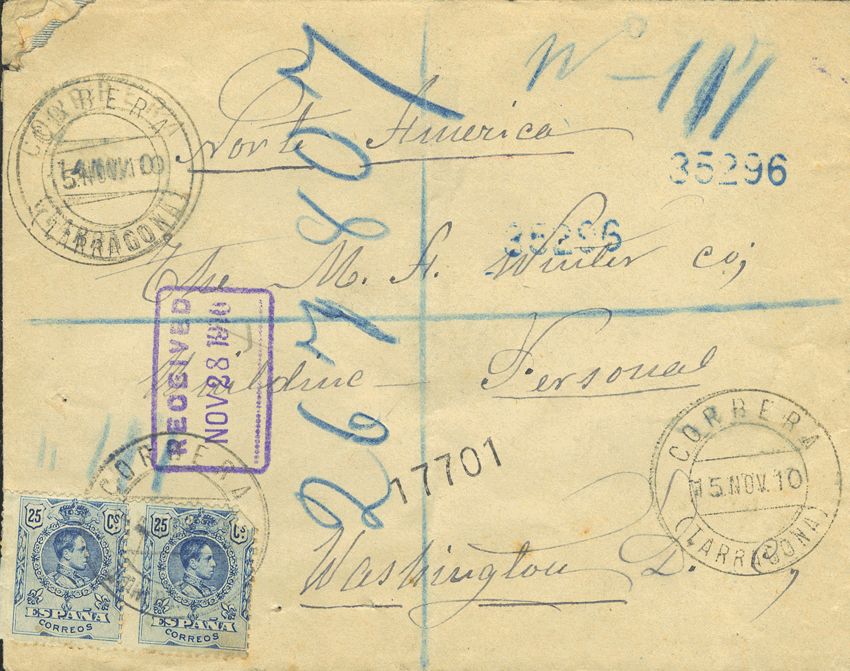 Nº - 111
CORBERA
(TARRAGONA)
Norte America
35296
35296
The M. A. Winter Co;
267807
RECEIVED
NOV 28 1910
Building - Personal
CORBERA
15.NOV.10
(TARRAGONA)
17701
CORBERA
Washington D.
25 Cs
ESPAÑA
CORREOS
25 Cs
ESPAÑA
CORREOS